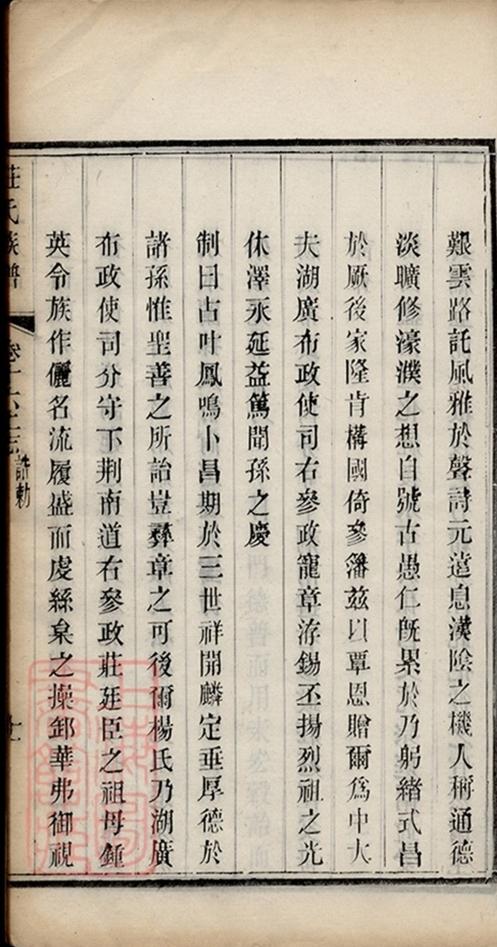 艱雲路託風雅於聲詩元造息漢陰之機人稱通德
淡曠修濠濮之想自號古愚仁旣累於乃躬緒式昌
於厥後家隆肯構國倚參藩兹以覃恩贈爾爲中大
夫湖廣布政使司右參政寵章洊錫丕揚烈祖之光
休澤永延益篤聞孫之慶
制曰古叶鳳鳴卜昌期於三世祥開麟定垂厚德於
諸孫惟聖善之所詒豈彞章之可後爾楊氏乃湖廣
布政使司分守下荆南道右參政莊廷臣之祖母鍾
英令族作儷名流履盛而虔絲枲之操卸華弗御視
莊氏族譜
誥勅